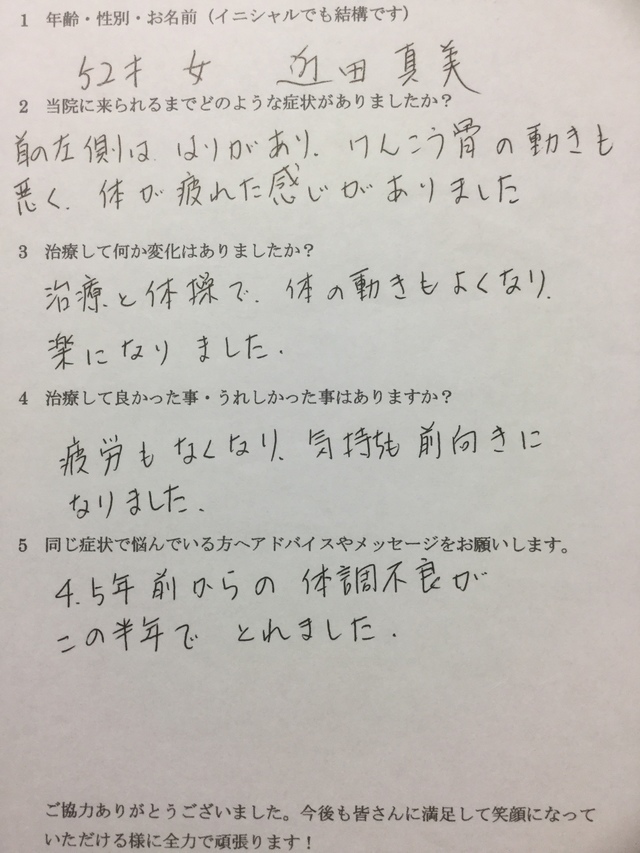 1 年齢・性別・お名前（イニシャルでも結構です）
52才 女 近田真美
2 当院に来られるまでどのような症状がありましたか？
首の左側は はりがあり、けんこう骨の動きも
悪く、体が疲れた感じがありました
3 治療して何か変化はありましたか？
治療と体操で、体の動きもよくなり、
楽になりました.
4 治療して良かった事・うれしかった事はありますか？
疲労もなくなり、気持ちも前向きに
なりました.
5 同じ症状で悩んでいる方へアドバイスやメッセージをお願いします。
4.5年前からの体調不良が
この半年で とれました.
ご協力ありがとうございました。今後も皆さんに満足して笑顔になって
いただける様に全力で頑張ります！